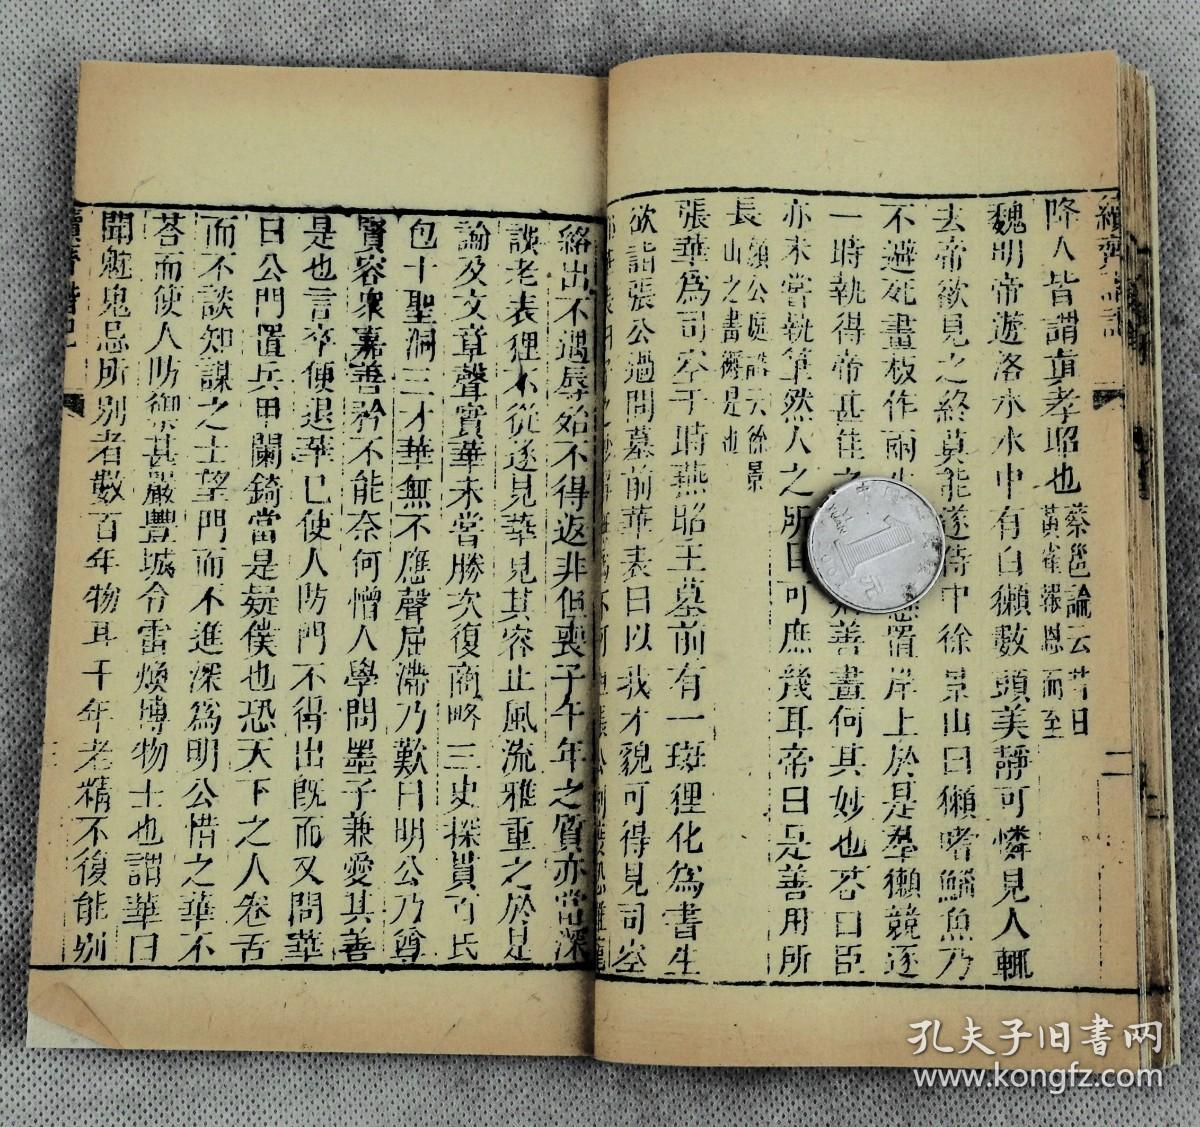 續齊諧記
二
降人皆謂眞孝昭也蔡邕論云昔日黃雀報恩而至
魏明帝遊洛水水中有白獺數頭美靜可憐見人輒
去帝欲見之終莫能遂侍中徐景山曰獺嗜鯔魚乃
不避死畫板作兩生 懸置岸上於是羣獺競逐
一時執得帝甚佳之 善畫何其妙也荅曰臣
亦未嘗執筆然人之所 可庶幾耳帝曰是善用所
長 之書 是也
張華為司空于時燕昭王墓前有一斑狸化為書生
欲詣張公過問墓前華表曰以我才貌可得見司空
絡出不遇辱始不得返非但喪子千年之質亦當深
談老表狸不從遂見華見其容止風流雅重之於是
論及文章聲實華未嘗勝次復商略三史探貫百氏
包十聖洞三才華無不應聲屈滯乃歎曰明公乃尊
賢容衆嘉善矜不能奈何憎人學問墨子兼愛其善
是也言卒便退華已使人防門不得出旣而又問華
曰公門置兵甲闌錡當是疑僕也恐天下之人卷舌
而不談知謀之士望門而不進深爲明公惜之華不
荅而使人防御甚嚴豐城令雷煥博物士也謂華曰
聞魑鬼忌所別者數百年物耳千年老精不復能別
續齊諧記
1
元
孔夫子旧书网
www.kongfz.com